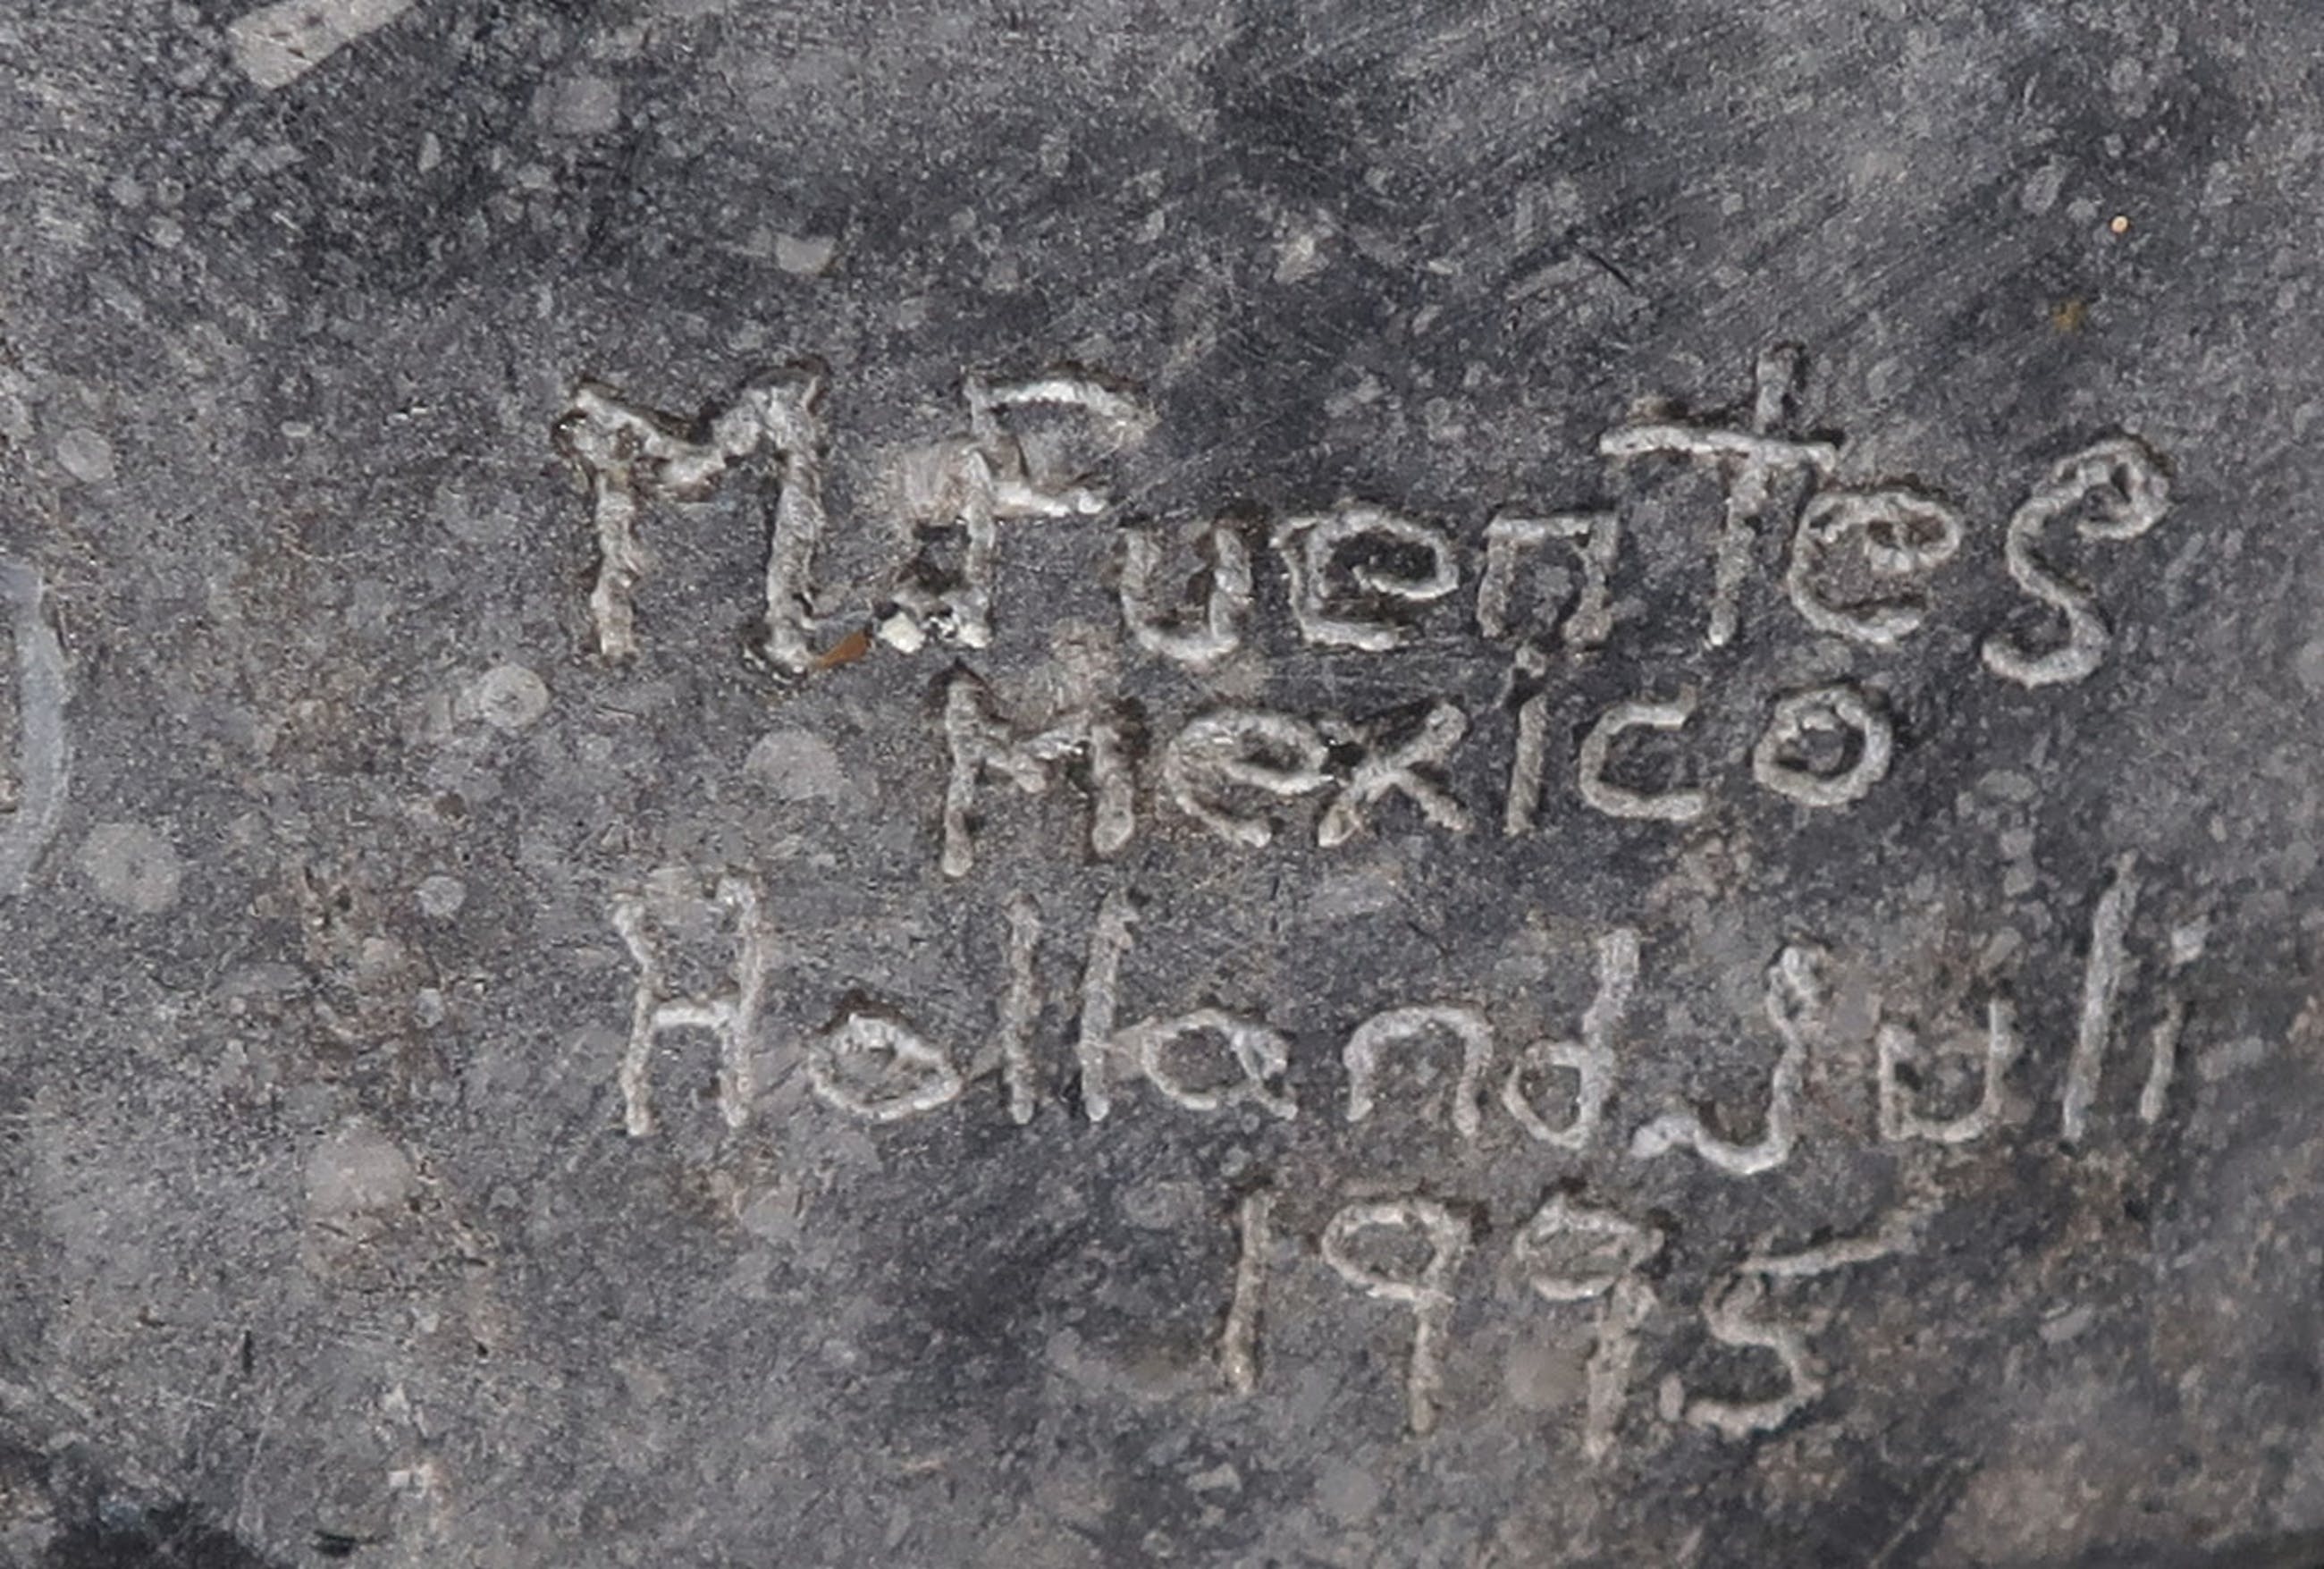 M Fuentes
Mexico
Holland Juli
1995